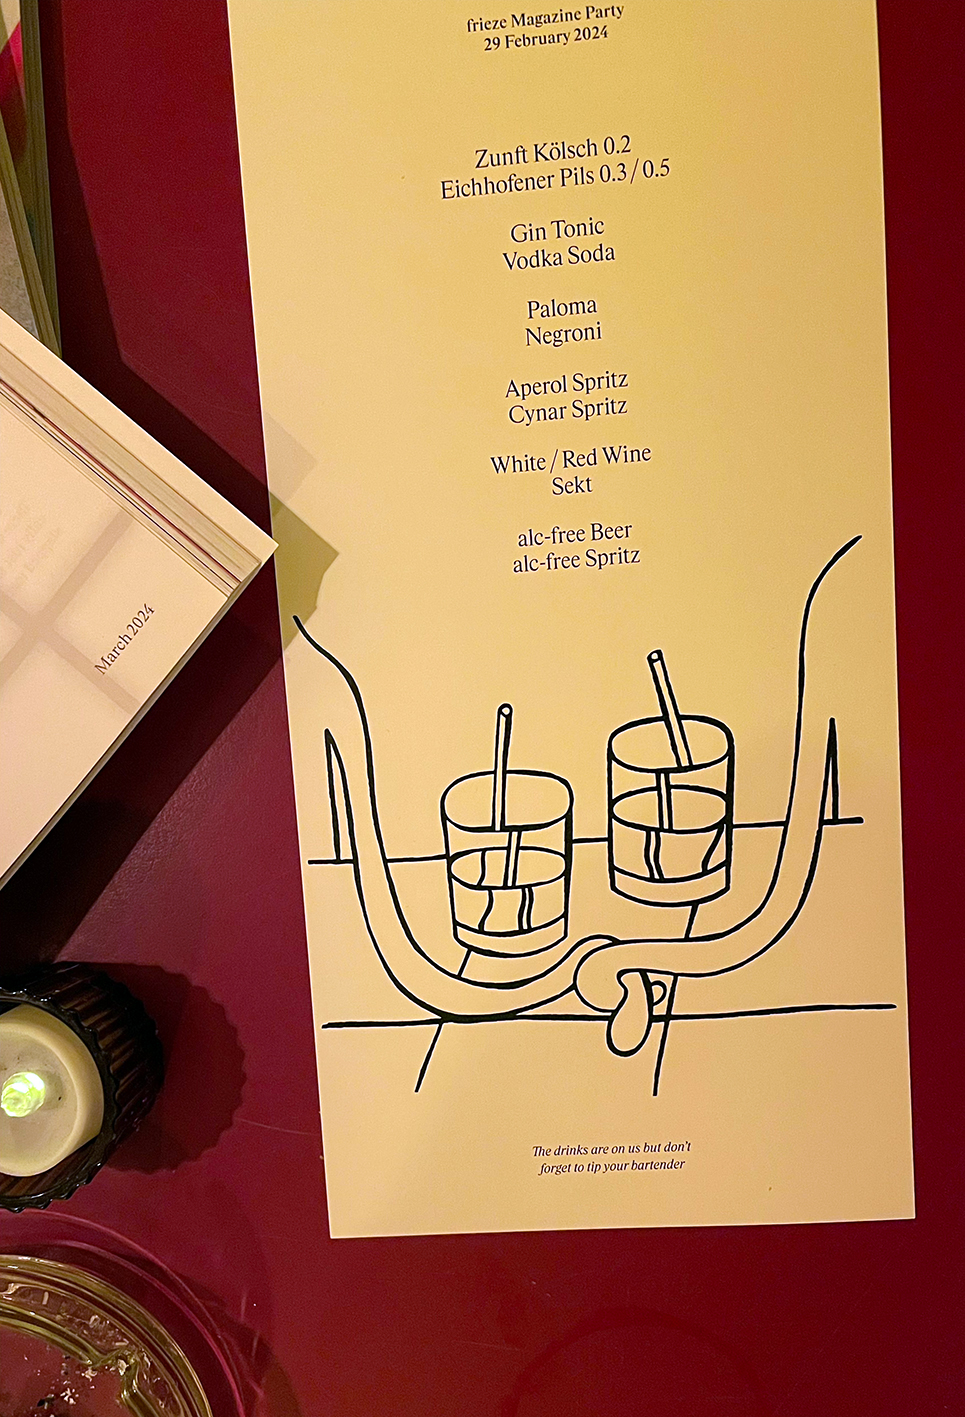 frieze Magazine Party
29 February 2024
Zunft Kölsch 0.2
Eichhofener Pils 0.3 / 0.5
Gin Tonic
Vodka Soda
Paloma
Negroni
Aperol Spritz
Cynar Spritz
White / Red Wine
Sekt
alc-free Beer
alc-free Spritz
The drinks are on us but don't
forget to tip your bartender
March 2024